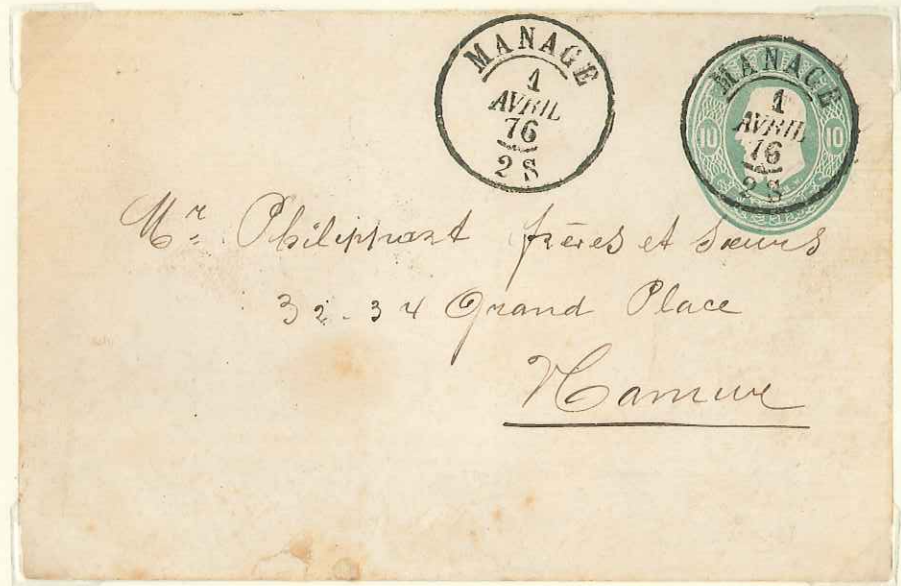 MANAGE
1
AVRIL
76
2 S
MANAGE
1
AVRIL
76
2 S
10 10
Mr. Philippart frères et sœurs
32-34 Grand Place
Namur